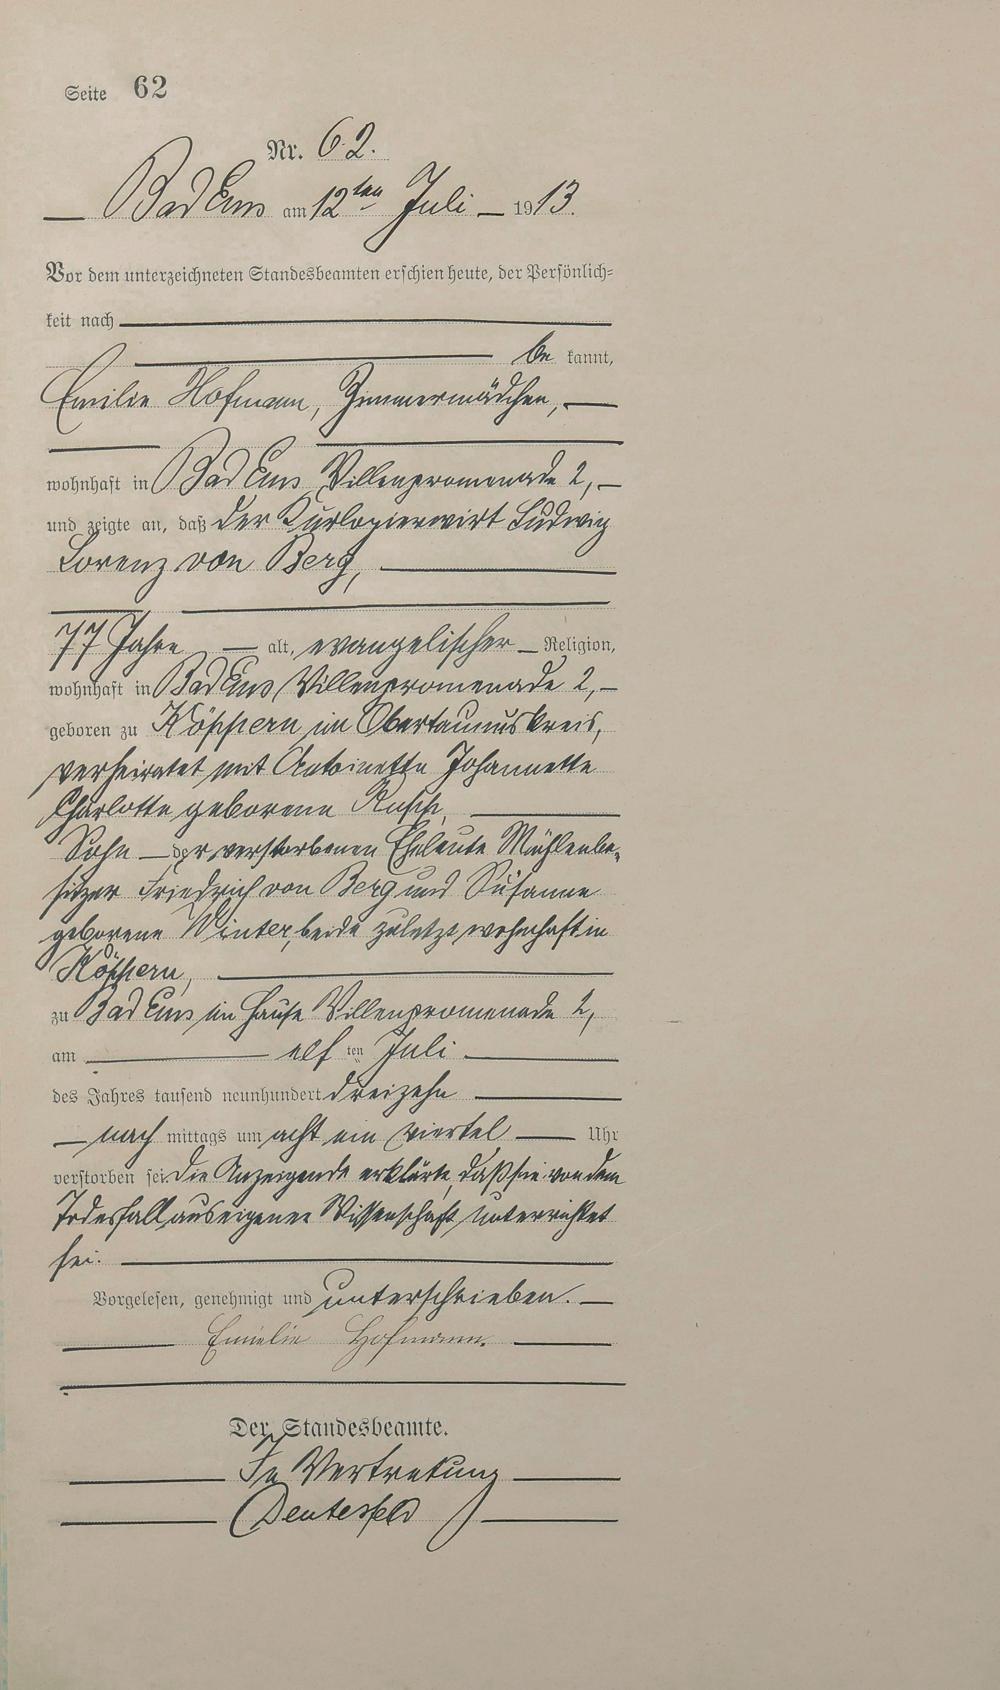 Seite 62
Nr. 62.
Bad Ems am 12ten Juli 1913.
Vor dem unterzeichneten Standesbeamten erschien heute, der Persönlich=
keit nach
be kannt,
Emilie Hofmann, Zimmermädchen,
wohnhaft in Bad Ems Villenpromenade 2,
und zeigte an, daß der Kurlogierwirt Ludwig
Lorenz von Berg,
77 Jahre alt, evangelischer Religion,
wohnhaft in Bad Ems Villenpromenade 2,
geboren zu Köppern im Obertaunuskreis,
verheiratet mit Antoinette Johannette
Charlotte geborene
Sohn der verstorbenen Eheleute Mühlenbe-
sitzer Friedrich von Berg und Susanne
geborene Winter, beide zuletzt wohnhaft in
Köppern,
zu Bad Ems im Hause Villenpromenade 2,
am elf ten Juli
des Jahres tausend neunhundert dreizehn
nach mittags um acht ein viertel Uhr
verstorben sei. Die Anzeigende erklärte, daß sie von dem
Todesfall aus eigener Wissenschaft unterrichtet
sei.
Vorgelesen, genehmigt und unterschrieben.
Emielie Hofmann.
Der Standesbeamte.
In Vertretung